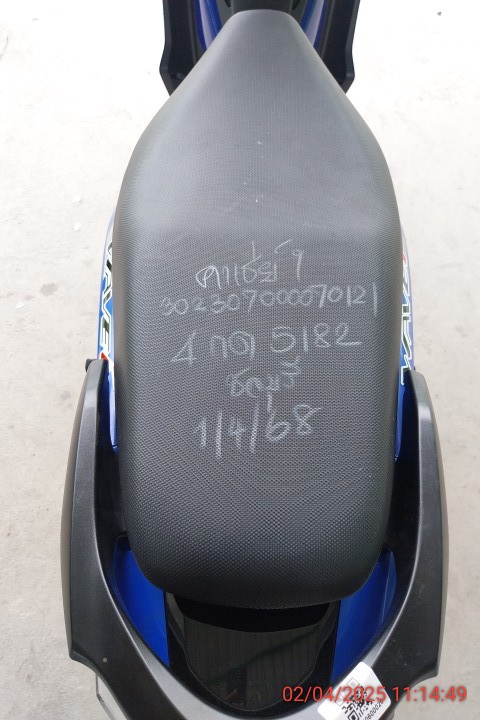 คาเธ่ย์ 1
30230700007012|
4 กด 5182
ชลบุรี
1/4/68
WAVE
WAVE
02/04/2025 11:14:49